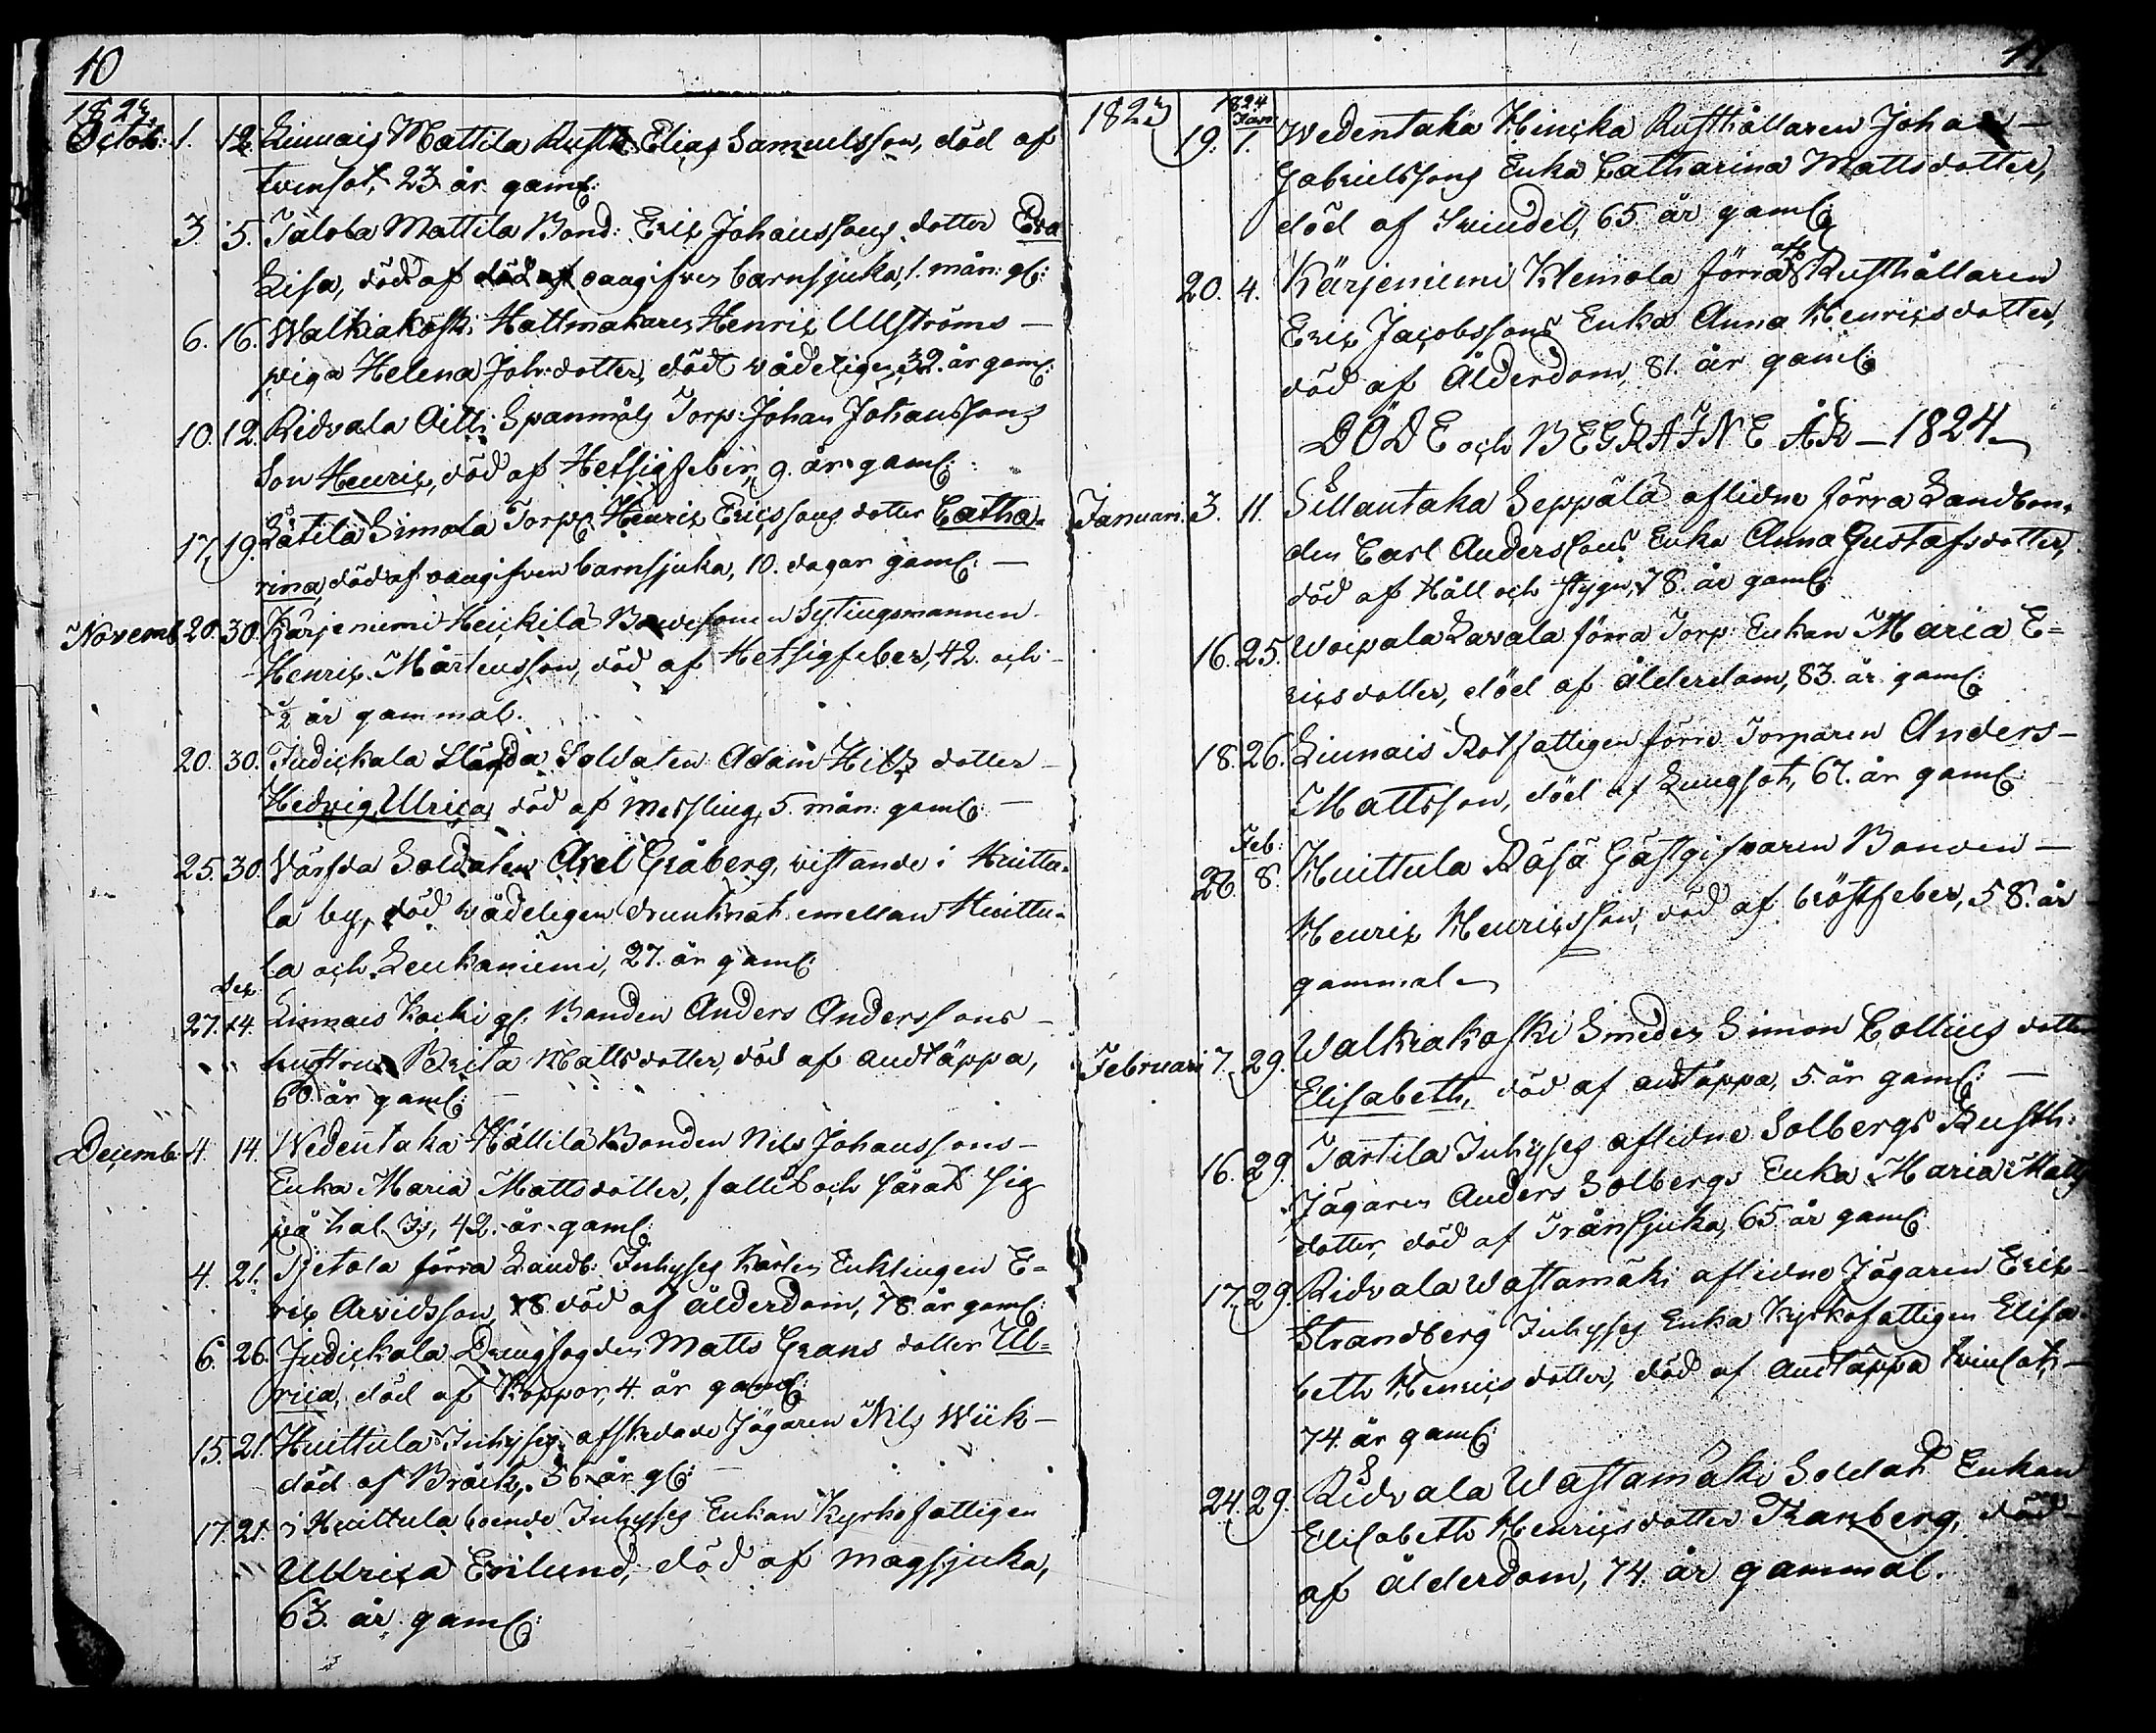 10
1823.
Octob: 1. 12. Linnais Mattila Rusth: Elias Samuelsson, död af
tvinsot, 23 år gaml:
3. 5. Jutola Mattila Bond: Eric Johanssons dotter Eva
Lisa, död af död af oangifven barnsjuka, 1. mån: gl:
6. 16. Walkiakoski Hattmakaren Henric Ullströms —
piga Helena Joh: dotter, död vådeligen, 32. år gaml:
10. 12. Ridvala Aitti Spanmåls Torp: Johan Johanssons
Son Henric, död af Hetsigfeber, 9. år gaml:
17. 19. Låtila Simola Torp: Henric Ericssons dotter Catha-
rina, död af oangifven barnsjuka, 10. dagar gaml: —
Novemb. 20. 30. Kärjeniemi Heickilä Bondesonen Sytingsmannen
Henric Mårtensson, död af Hetsigfeber, 42. och
1/2 år gammal.
20. 30. Judickala Soldaten Adam Hilts dotter —
Hedvig Ulrica, död af Messling, 5. mån: gaml: —
25. 30. Vårfda Soldaten Axel Gråberg, vistande i Huittu-
la by, död vådeligen drunknat emellan Huittu-
la och Leukaniemi, 27. år gaml:
Dec.
27. 14. Linnais Kocki gl: Bonden Anders Anderssons —
hustru Brita Mattsdotter, död af andtäppa,
60. år gaml: —
Decemb. 4. 14. Wedentaka Hållila Bonden Nils Johanssons —
Enka Maria Mattsdotter, fallit och särat sig
på hal Is, 42. år gaml:
4. 21. Pjetola förra Landb: Inhyses Karlen Enklingen E-
ric Arvidsson, 78 död af ålderdom, 78. år gaml:
6. 26. Judickala Drengfogden Matts Grans dotter Ul-
rica, död af Koppor, 4. år gaml:
15. 21. Huittula Inhyses afskedade Jägaren Nils Wiik —
död af Bråck, 56. år gl: —
17. 21. i Huittula boende Inhyses Enkan Kyrkofattigen
Ullrica Enlund, död af magsjuka,
63. år gaml:
11
1823 1824
Jan:
19. 1. Wedentaka Hincka Rusthållaren Johan —
Gabrielssons Enka Catharina Mattsdotter,
död af Svindel, 65 år gaml:
afl:
20. 4. Kärjeniemi Klemola förra Rusthållaren
Eric Jacobssons Enka Anna Henricsdotter,
död af Ålderdom, 81. år gaml:
DÖDE och BEGRAFNE ÅR — 1824
Januari. 3. 11. Sillantaka Seppälä aflidne förra Landbon-
den Carl Anderssons Enka Anna Gustafsdotter,
död af Håll och styng, 78. år gaml:
16. 25. Woipala Lavala förra Torp: Enkan Maria E=
ricsdotter, död af ålderdom, 83. år gaml:
18. 26. Linnais Rotfattigen förre Torparen Anders —
Mattsson, död af Lungsot, 67. år gaml:
Feb:
26. 8. Huittula Räsä Gästgifvaren Bonden —
Henric Henricsson, död af bröstfeber, 58. år
gammal
Februari 7. 29. Walkiakoski Smeden Simon Collins dotter
Elisabeth, död af andtäppa, 5. år gaml: —
16. 29. Tartila Inhyses aflidne Solbergs Rusth:
Jägaren Anders Solbergs Enka Maria Matts
dotter, död af Trånsjuka, 65. år gaml:
17. 29. Ridvala Wastamäki aflidne Jägaren Eric
Strandberg Inhyses Enka Kyrkofattigen Elisa
beth Henricsdotter, död af Andtäppa tvinsot —
74. år gaml:
24. 29. Ridvala Wastamäki Soldat Enkan
Elisabeth Henricsdotter Ranberg, död
af ålderdom, 74. år gammal.